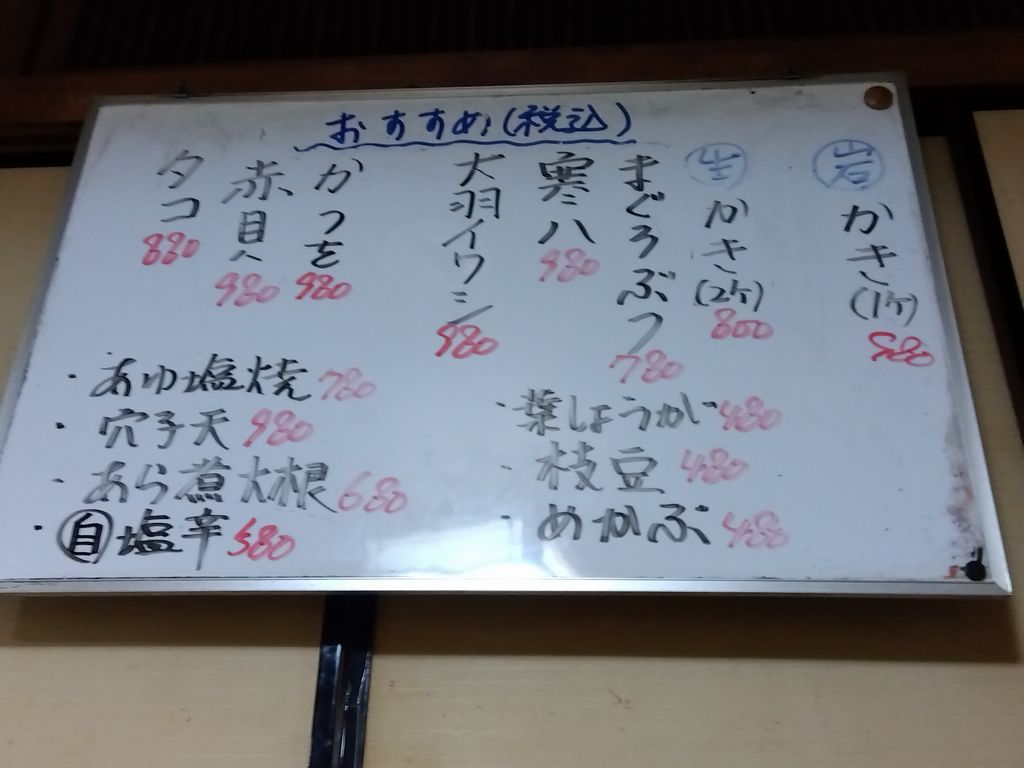 おすすめ(税込)
岩かき(1ケ) 980
生かき(2ケ) 800
まぐろぶつ 780
寒八 980
大羽イワシ 980
かつを 980
赤貝 980
タコ 880
・あゆ塩焼 780
・穴子天 980
・あら煮大根 680
・自塩辛 580
・葉しょうが 480
・枝豆 480
・めかぶ 480